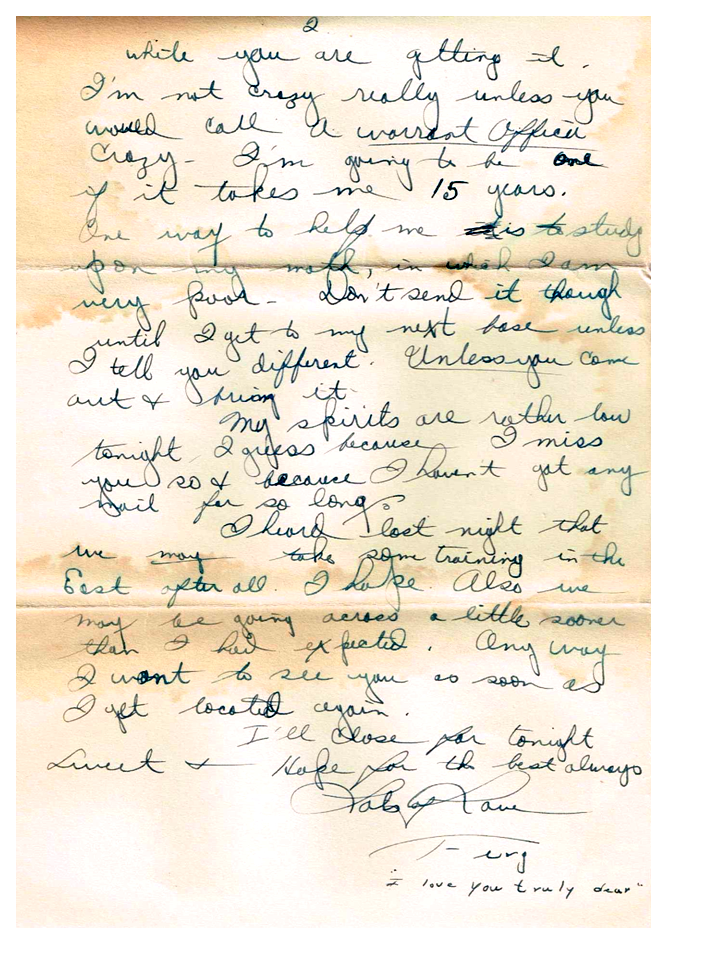 2
while you are getting it.
I'm not crazy really unless you
would call a warrant Officer
Crazy - I'm going to be one
if it takes me 15 years.
One way to help me is to study
upon my math, in which I am
very poor - Don't send it though
until I get to my next base unless
I tell you different. Unless you come
out & bring it.
My spirits are rather low
tonight I guess because I miss
you so & because I haven't got any
mail for so long.
I heard last night that
we may take some training in the
East after all. I hope. Also we
may be going across a little sooner
than I had expected. Any way
I want to see you as soon as
I get located again.
I'll close for tonight
Sweet & Hope for the best always
Lots of Love
Ferg
"I love you truly dear"